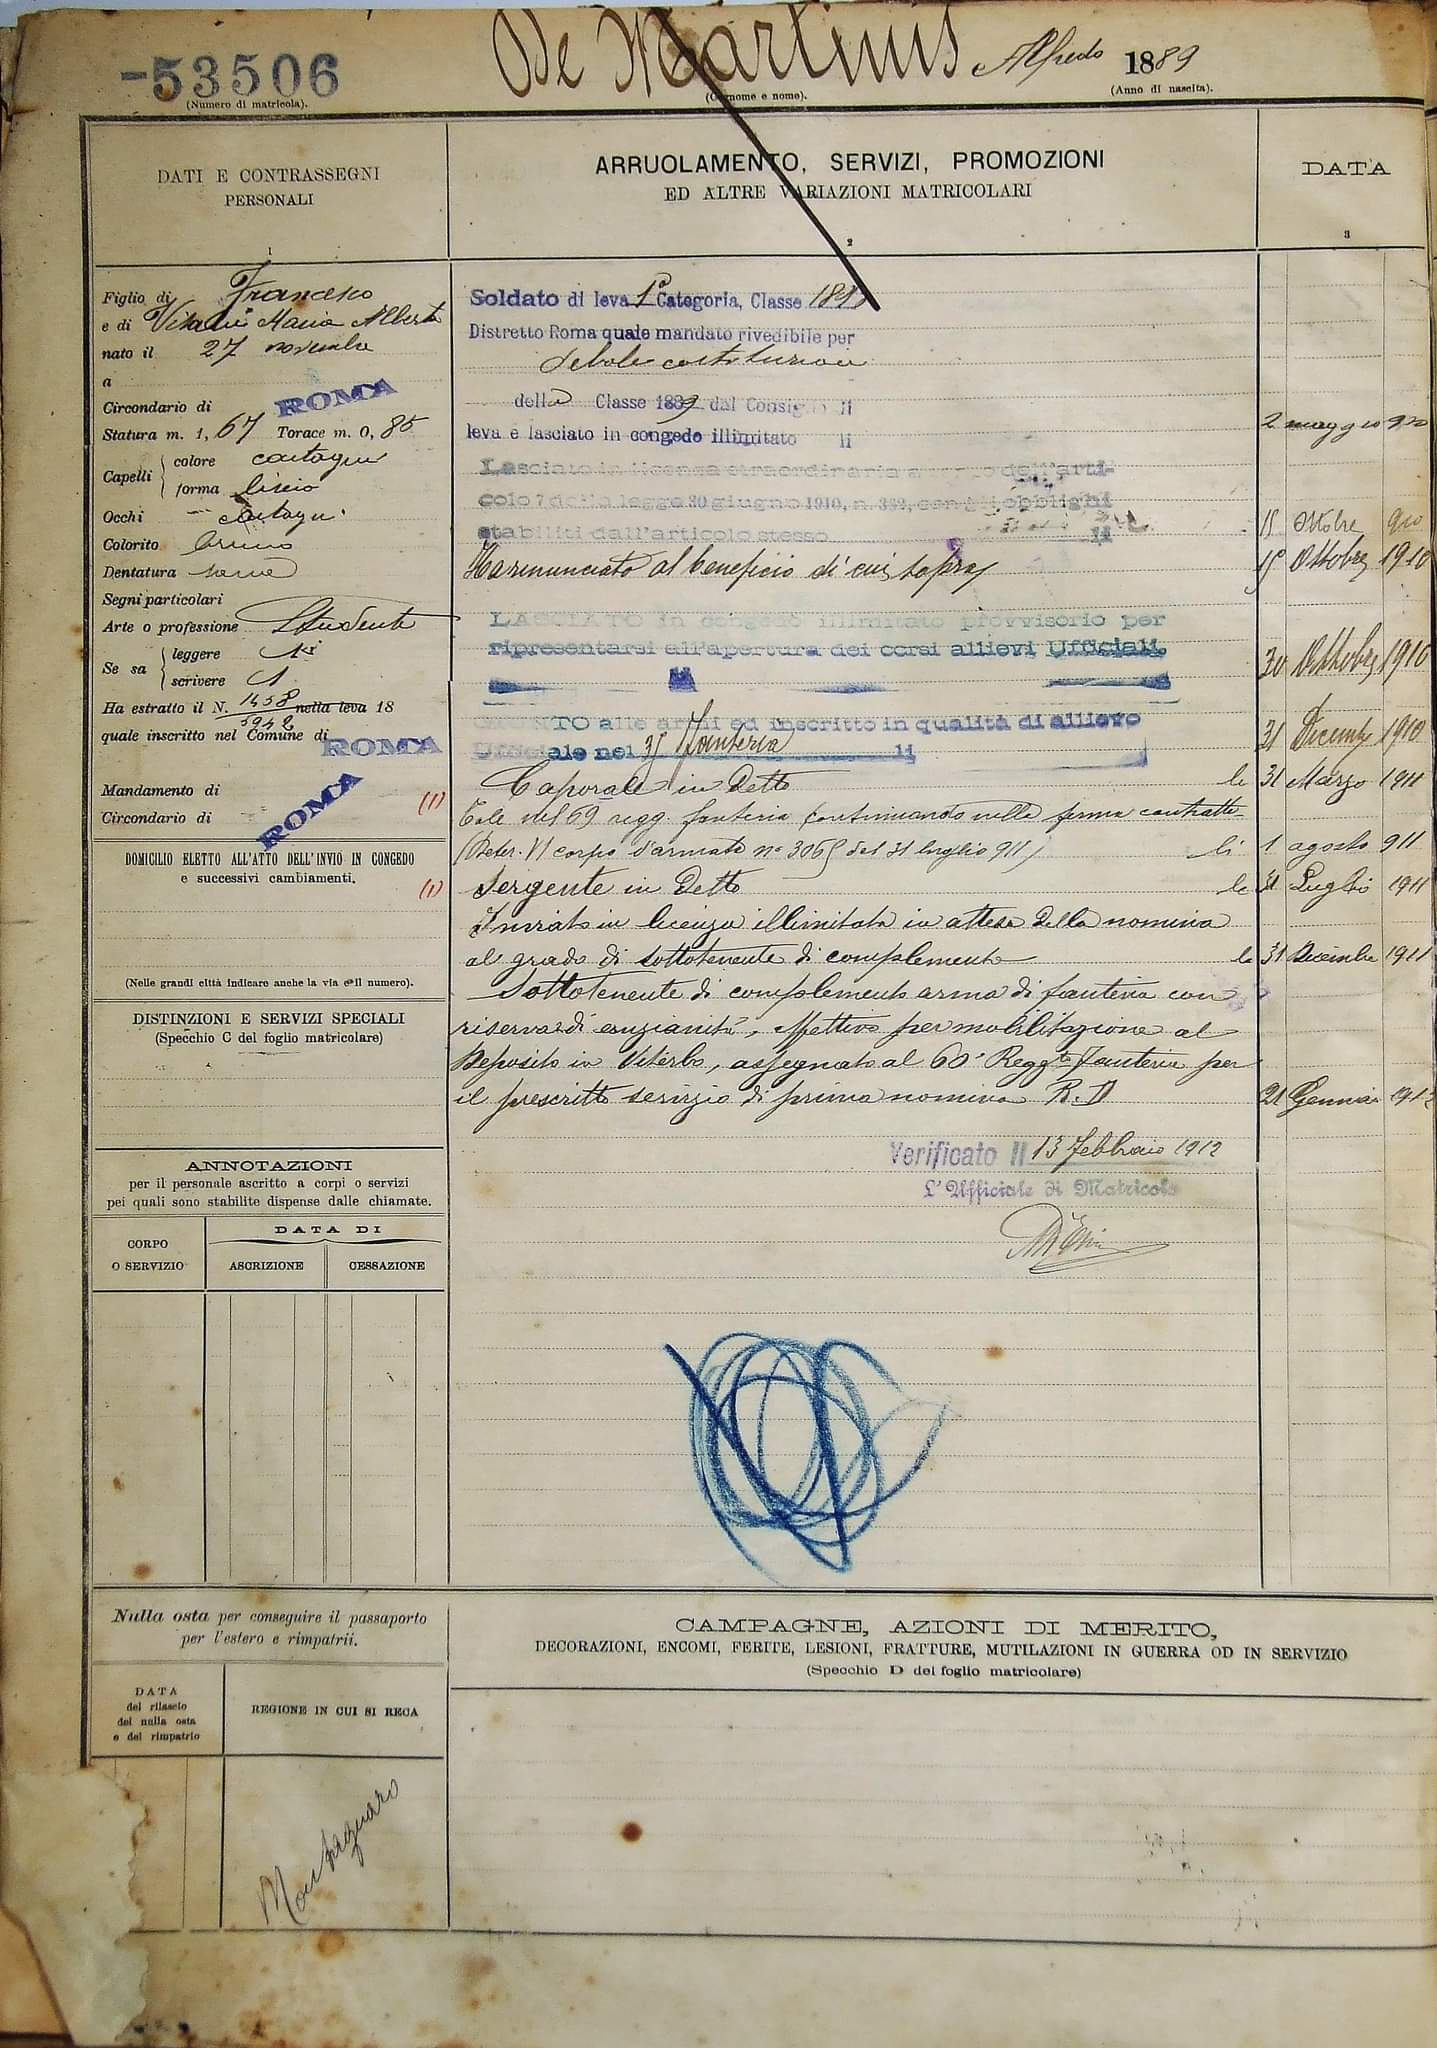 -53506
(Numero di matricola).
De Martinis Alfredo 1889
(Cognome e nome).
(Anno di nascita).
DATI E CONTRASSEGNI
PERSONALI
1
ARRUOLAMENTO, SERVIZI, PROMOZIONI
ED ALTRE VARIAZIONI MATRICOLARI
2
DATA
3
Figlio di Francesco
e di Maria Alberta
nato il 27 novembre
a
Circondario di ROMA
Statura m. 1, 67 Torace m. 0, 85
Capelli colore castagni
forma liscio
Occhi castagni
Colorito bruno
Dentatura sana
Segni particolari
Arte o professione Studente
Se sa leggere si
scrivere
Ha estratto il N. 1458 nella leva 18
5942
quale inscritto nel Comune di ROMA
Mandamento di
Circondario di ROMA
(1)
DOMICILIO ELETTO ALL'ATTO DELL'INVIO IN CONGEDO
e successivi cambiamenti.
(1)
(Nelle grandi città indicare anche la via e il numero).
DISTINZIONI E SERVIZI SPECIALI
(Specchio C del foglio matricolare)
ANNOTAZIONI
per il personale ascritto a corpi o servizi
pei quali sono stabilite dispense dalle chiamate.
CORPO
O SERVIZIO
DATA DI
ASCRIZIONE
CESSAZIONE
Soldato di leva 1ª Categoria, Classe
Distretto Roma quale mandato rivedibile per
debole costituzione
della Classe 1889 dal Consiglio di
leva e lasciato in congedo illimitato li 2 maggio 910
Lasciato in licenza straordinaria a dell'arti-
colo 7 della legge 30 giugno 1910, n. 362, con gli obblighi
stabiliti dall'articolo stesso li 15 Ottobre 910
Ha rinunciato al beneficio di cui sopra 15 Ottobre 1910
LASCIATO in congedo illimitato provvisorio per
ripresentarsi all'apertura dei corsi allievi Ufficiali
li 30 Ottobre 1910
GIUNTO alle armi ed inscritto in qualità di allievo
Ufficiale nel Fanteria li 31 Dicembre 1910
Caporale in Detto li 31 Marzo 1911
Tale nel 69 regg. fanteria continuando nella ferma contratta
(Deter. VI corpo d'armata n° 3065 del 31 luglio 911) li 1 agosto 911
Sergente in Detto li 31 Luglio 1911
Inviato in licenza illimitata in attesa della nomina
al grado di sottotenente di complemento li 31 Dicembre 1911
Sottotenente di complemento arma di fanteria con
riserva di anzianità, effettivo per mobilitazione al
Deposito in Viterbo, assegnato al 60° Reggto Fanteria per
il prescritto servizio di prima nomina R. D. 21 Gennaio 1912
Verificato li 13 Febbraio 1912
L'Ufficiale di Matricola
Nulla osta per conseguire il passaporto
per l'estero e rimpatrii.
DATA
del rilascio
del nulla osta
e del rimpatrio
REGIONE IN CUI SI RECA
CAMPAGNE, AZIONI DI MERITO,
DECORAZIONI, ENCOMI, FERITE, LESIONI, FRATTURE, MUTILAZIONI IN GUERRA OD IN SERVIZIO
(Specchio D del foglio matricolare)